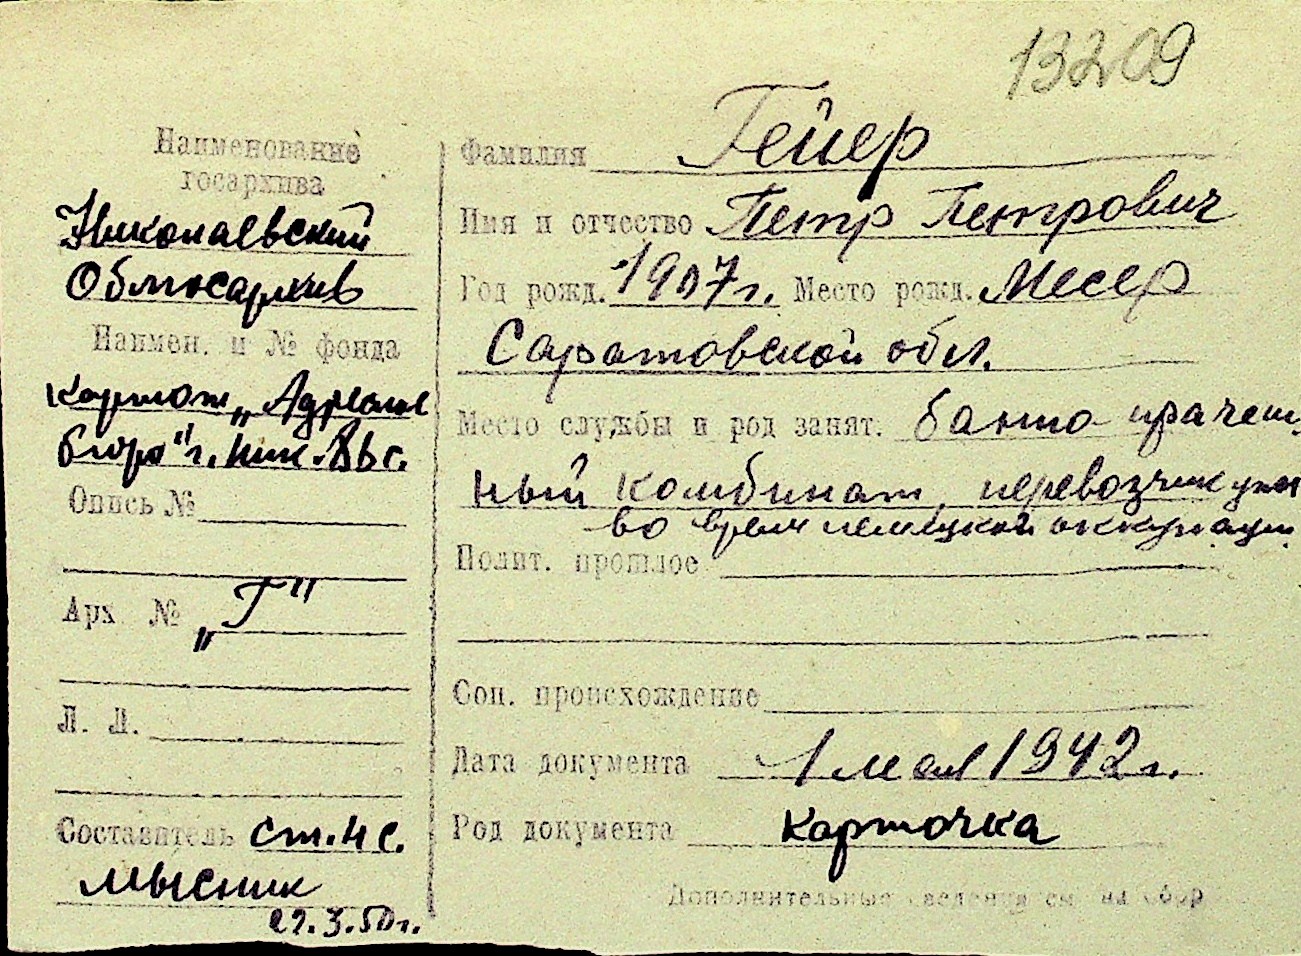 13209
Наименование
госархива
Николаевский
Облгосархив
Наимен. и № фонда
Картот. „Адресное
бюро" г. Ник.
Опись №
Арх № „Г"
Л. Л.
Составитель ст. н с.
Мысник
22.3.50г.
Фамилия Гейер
Имя и отчество Петр Петрович
Год рожд. 1907г. Место рожд. Месер
Саратовской обл.
Место службы и род занят. банно прачеш
ный комбинат, перевозчик
во время немецкой оккупации
Полит. прошлое
Соц. происхождение
Дата документа 1 мая 1942г.
Род документа карточка
Дополнительные сведения см. на обор